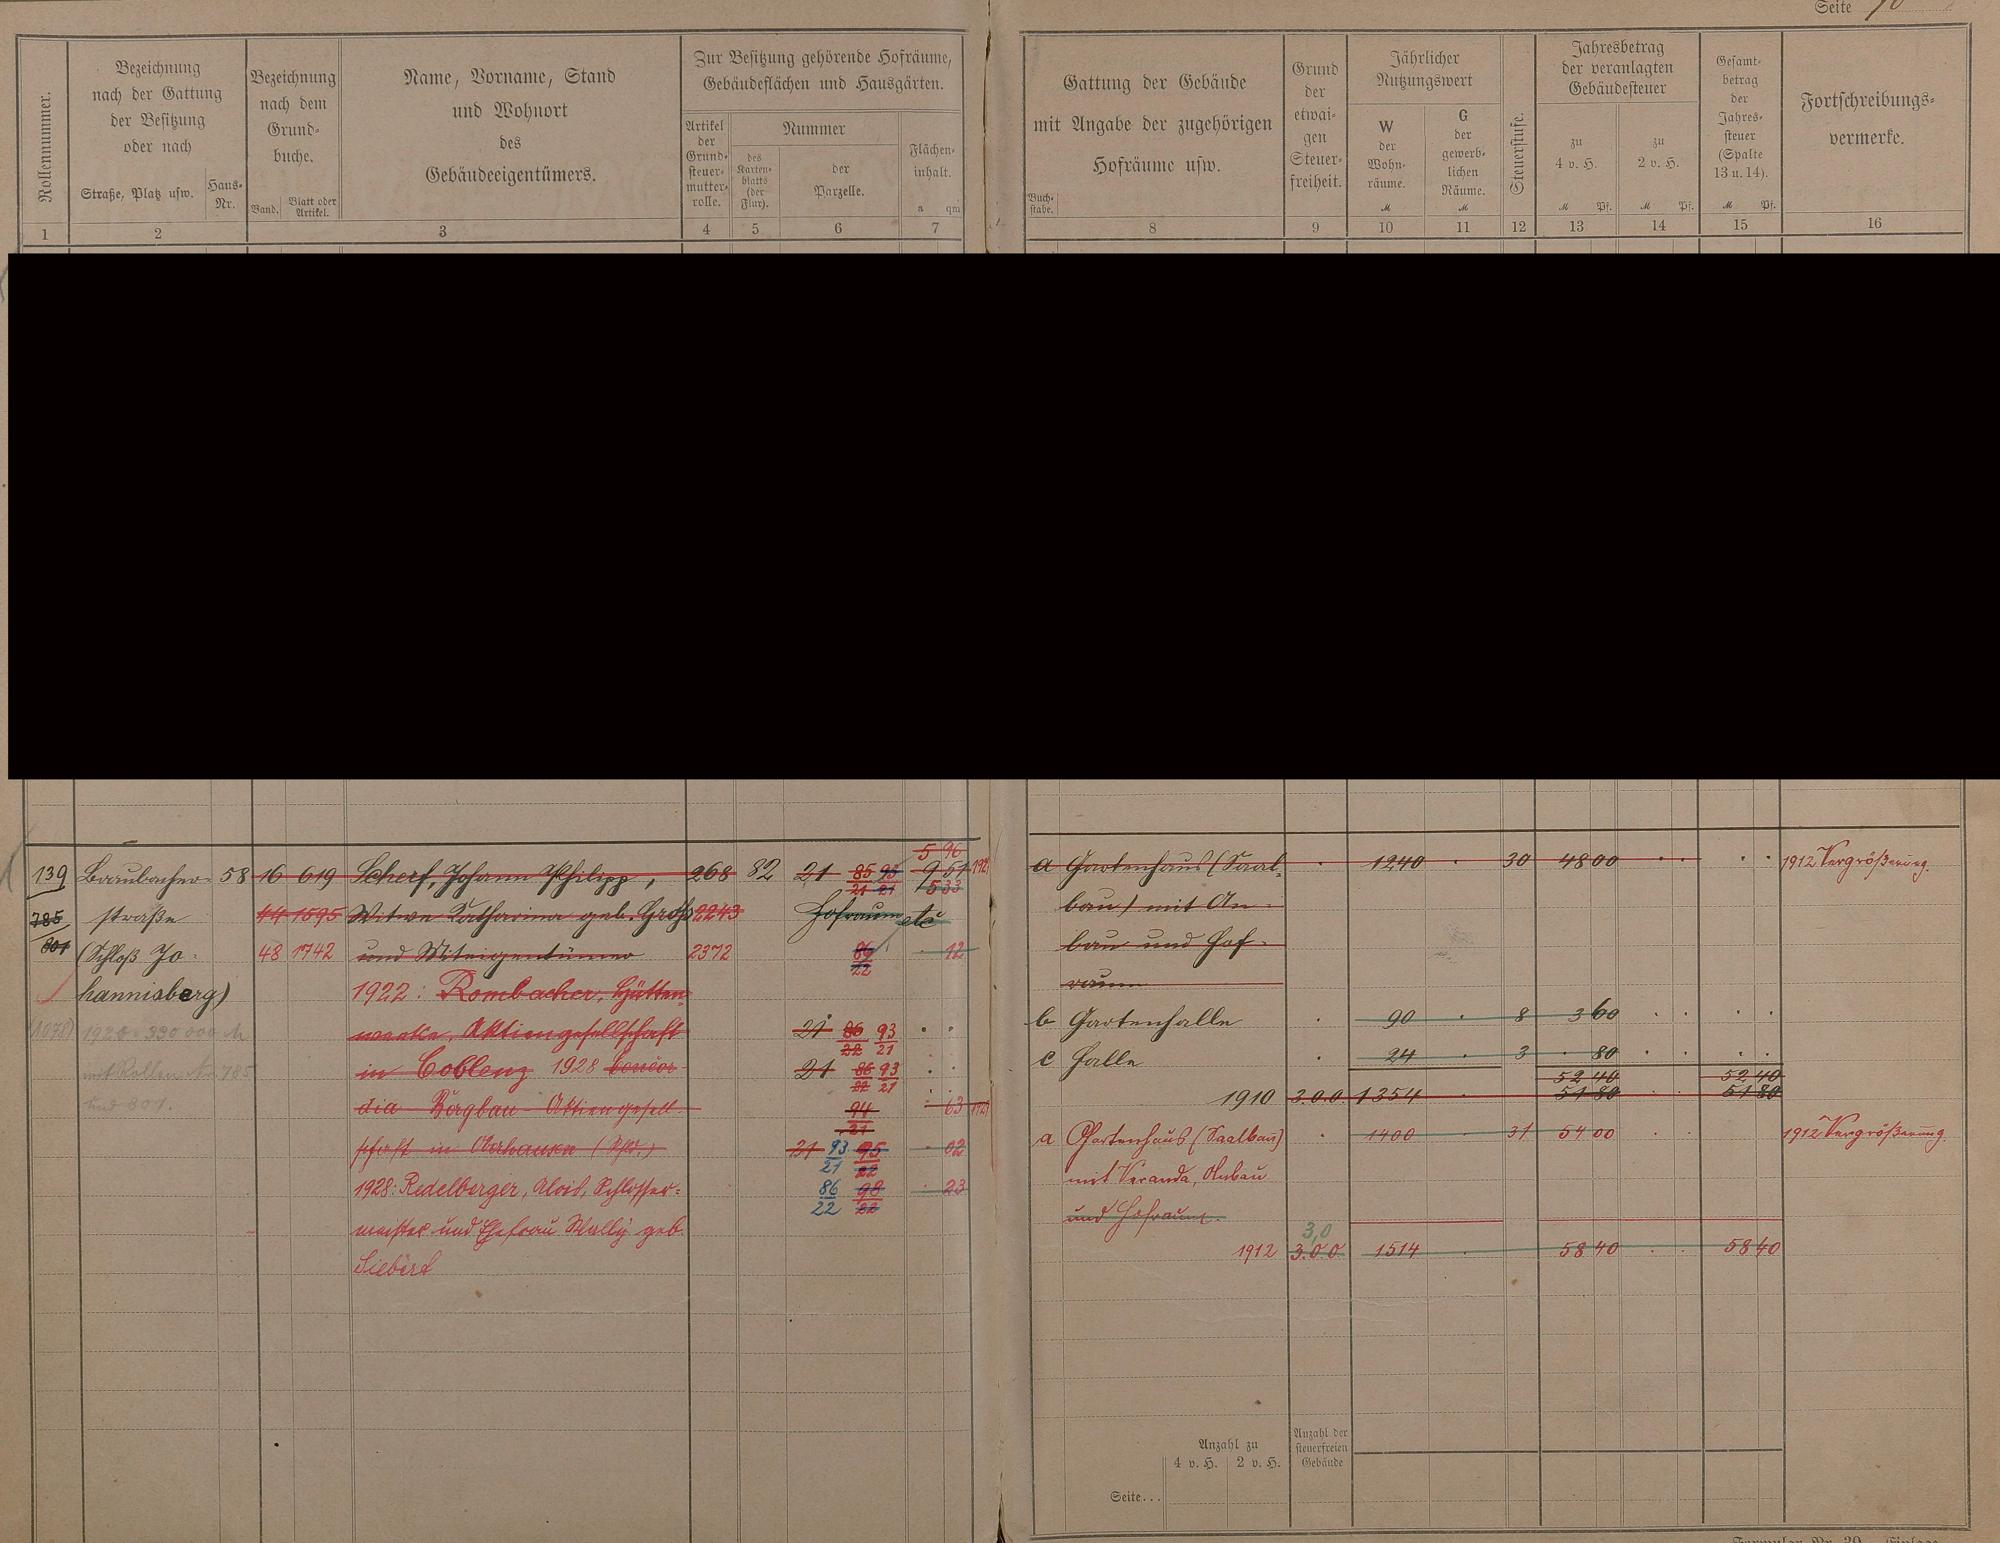 Seite
Rollennummer.
Bezeichnung
nach der Gattung
der Besitzung
oder nach
Straße, Platz usw.
Haus-
Nr.
Bezeichnung
nach dem
Grund-
buche.
Band.
Blatt oder
Artikel.
Name, Vorname, Stand
und Wohnort
des
Gebäudeeigentümers.
Zur Besitzung gehörende Hofräume,
Gebäudeflächen und Hausgärten.
Artikel
der
Grund-
steuer-
mutter-
rolle.
Nummer
des
Karten-
blatts
(der
Flur).
der
Parzelle.
Flächen-
inhalt.
a qm
1 2 3 4 5 6 7
Gattung der Gebäude
mit Angabe der zugehörigen
Hofräume usw.
Buch-
stabe.
Grund
der
etwai-
gen
Steuer-
freiheit.
Jährlicher
Nutzungswert
W
der
Wohn-
räume.
M
G
der
gewerb-
lichen
Räume.
M
Steuerstufe.
Jahresbetrag
der veranlagten
Gebäudesteuer
zu
4 v. H.
M Pf.
zu
2 v. H.
M Pf.
Gesamt-
betrag
der
Jahres-
steuer
(Spalte
13 u. 14).
M Pf.
Fortschreibungs-
vermerke.
8 9 10 11 12 13 14 15 16
5 96
139 Braubacher- 58 16 619 Scherf, Johann Philipp, 268 82 21 85 93 9 51
21 21 5 33
785 straße 44 1595 Witwe Katharina geb. Groß 2243 Hofraum etc
801 (Schloß Jo- 48 1742 und Miteigentümer 2372 12
22
hannisberg) 1922: Rombacher, Hütten-
1920 = 330 000 M werke, Aktiengesellschaft 21 86 93
22 21
mit Rollen Nr. 785 in Coblenz 1928 Concor- 21 86 93
22 21
und 801. dia Bergbau-Aktiengesell- 94 63
21
schaft in Oberhausen 21 93 95 02
21 22
1928: Redelberger, Alois, Schlosser= 86 98 23
22 22
meister und Ehefrau Wally geb.
Siebert
a Gartenhaus (Saal- 1240 30 48 00 1912 Vergrößerung.
bau) mit An-
bau und Hof-
raum
b Gartenhalle 90 8 3 60
c Halle 24 3 80
52 40 52 40
1910 3.0.0. 1354 51 80 51 80
a Gartenhaus (Saalbau) 1400 31 54 00 1912 Vergrößerung.
mit Veranda, Anbau
und Hofraum.
3,0
1912 3.0.0 1514 58 40 58 40
Anzahl zu
4 v. H. 2 v. H.
Anzahl der
steuerfreien
Gebäude
Seite...